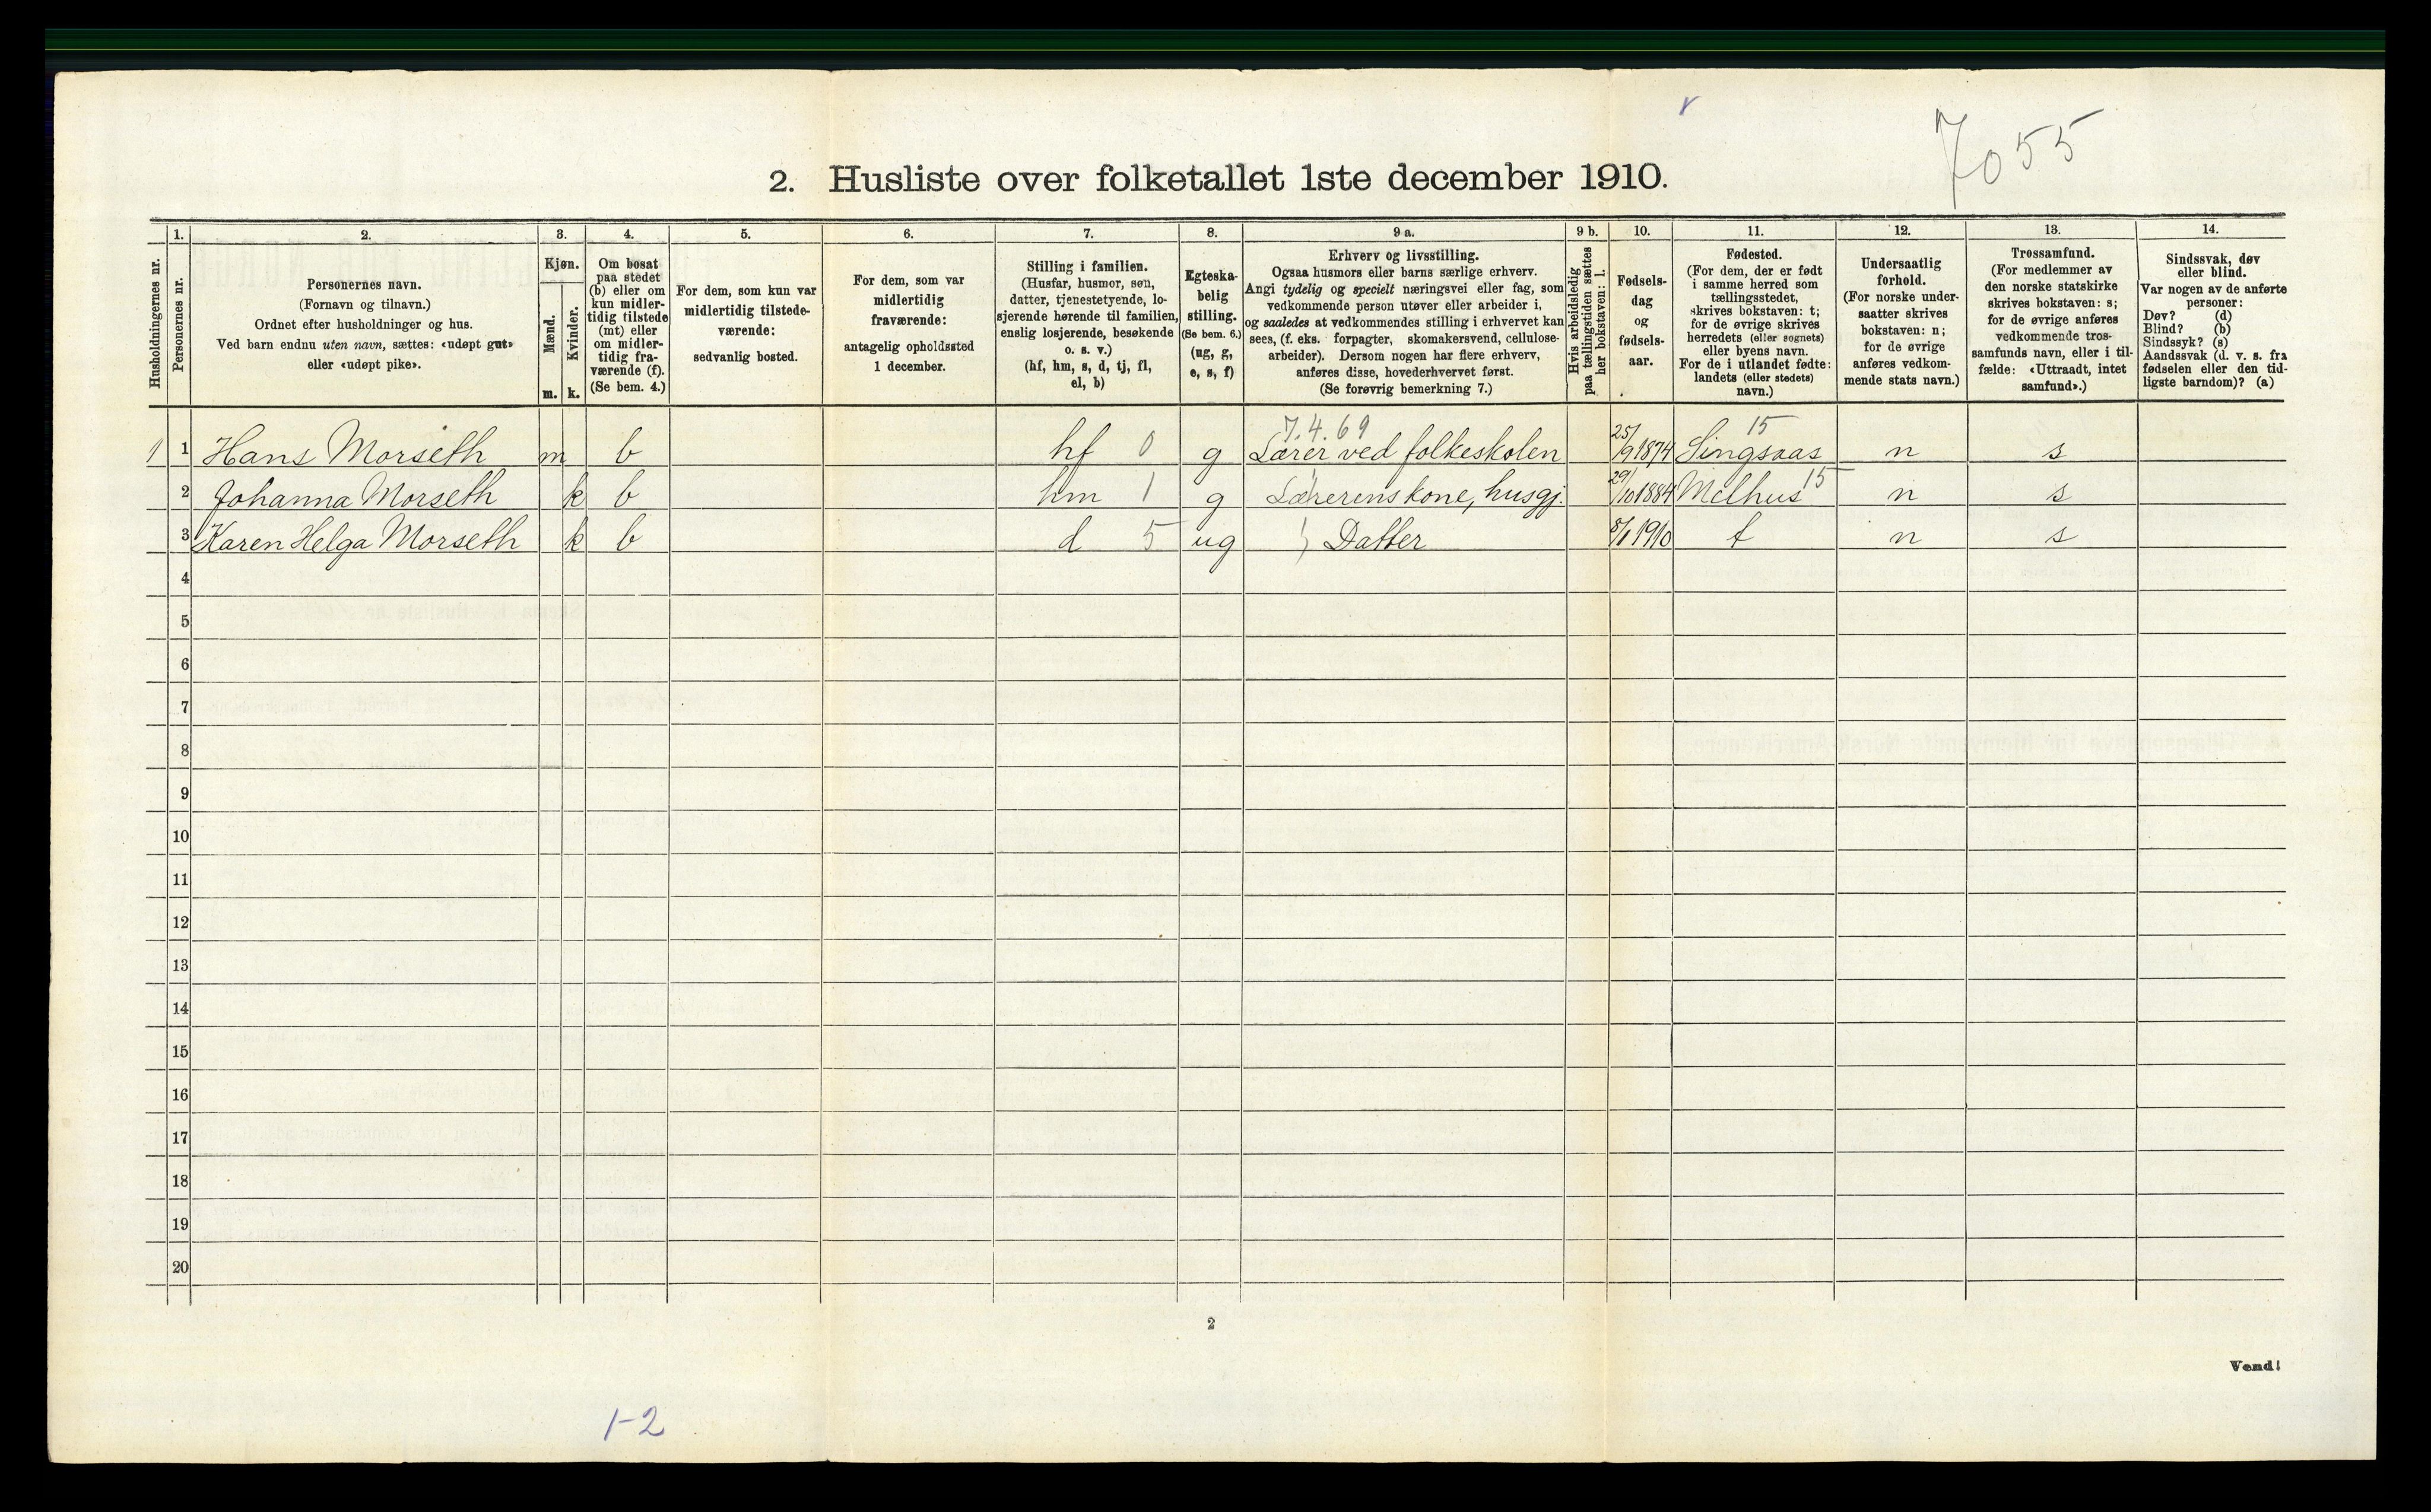 7055
2. Husliste over folketallet 1ste december 1910.
Husholdningernes nr.
1.
Personernes nr.
2.
Personernes navn.
(Fornavn og tilnavn.)
Ordnet efter husholdninger og hus.
Ved barn endnu uten navn, sættes: «udøpt gut»
eller «udøpt pike».
3.
Kjøn.
Mænd.
Kvinder.
m. k.
4.
Om bosat
paa stedet
(b) eller om
kun midler-
tidig tilstede
(mt) eller
om midler-
tidig fra-
værende (f).
(Se bem. 4.)
5.
For dem, som kun var
midlertidig tilstede-
værende:
sedvanlig bosted.
6.
For dem, som var
midlertidig
fraværende:
antagelig opholdssted
1 december.
7.
Stilling i familien.
(Husfar, husmor, søn,
datter, tjenestetyende, lo-
sjerende hørende til familien,
enslig losjerende, besøkende
o. s. v.)
(hf, hm, s, d, tj, fl,
el, b)
8.
Egteska-
belig
stilling.
(Se bem. 6.)
(ug, g,
e, s, f)
9 a.
Erhverv og livsstilling.
Ogsaa husmors eller barns særlige erhverv.
Angi tydelig og specielt næringsvei eller fag, som
vedkommende person utøver eller arbeider i,
og saaledes at vedkommendes stilling i erhvervet kan
sees, (f. eks. forpagter, skomakersvend, cellulose-
arbeider). Dersom nogen har flere erhverv,
anføres disse, hovederhvervet først.
(Se forøvrig bemerkning 7.)
9 b.
Hvis arbeidsledig
paa tællingstiden sættes
her bokstaven: l.
10.
Fødsels-
dag
og
fødsels-
aar.
11.
Fødested.
(For dem, der er født
i samme herred som
tællingsstedet,
skrives bokstaven: t;
for de øvrige skrives
herredets (eller sognets)
eller byens navn.
For de i utlandet fødte:
landets (eller stedets)
navn.)
12.
Undersaatlig
forhold.
(For norske under-
saatter skrives
bokstaven: n;
for de øvrige
anføres vedkom-
mende stats navn.)
13.
Trossamfund.
(For medlemmer av
den norske statskirke
skrives bokstaven: s;
for de øvrige anføres
vedkommende tros-
samfunds navn, eller i til-
fælde: «Uttraadt, intet
samfund».)
14.
Sindssvak, døv
eller blind.
Var nogen av de anførte
personer:
Døv? (d)
Blind? (b)
Sindssyk? (s)
Aandssvak (d. v. s. fra
fødselen eller den tid-
ligste barndom)? (a)
7.4.69 15
1 1 Hans Morseth m b hf 0 g Lærer ved folkeskolen 25/9 1874 Singsaas n s
2 Johanna Morseth k b hm 1 g Lærerens kone, husgj. 29/10 1884 Melhus 15 n s
3 Karen Helga Morseth k b d 5 ug Datter 8/1 1910 t n s
4
5
6
7
8
9
10
11
12
13
14
15
16
17
18
19
20
2
Vend!
1-2